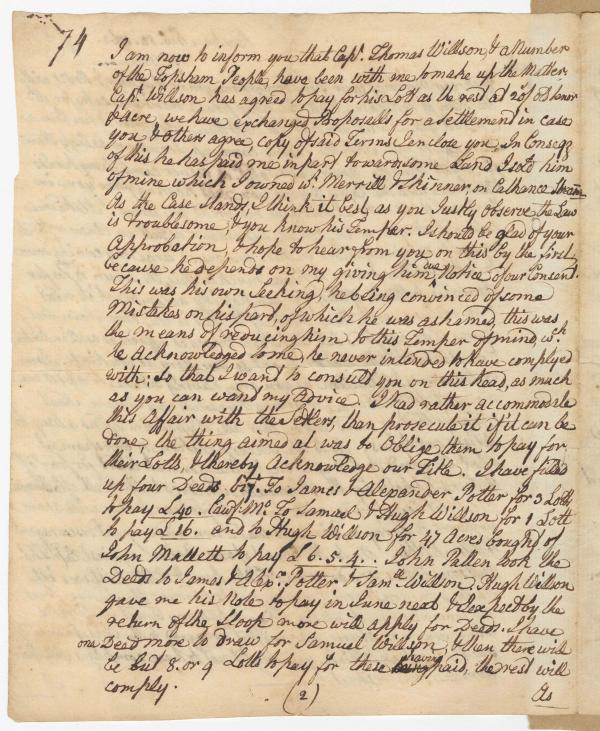 74
I am now to inform you that Capt. Thomas Willson, & a Number
of the Topsham People, have been with me to make up the Matter.
Capt. Willson has agreed to pay for his Lott as the rest at
& Acre, we have Exchanged Proposalls for a Settlement in case
you & others agree, copy of said Terms I enclose you, In Conseqe
of this he has paid me in part towards some Land I sold him
of mine which I owned wt. Merrill & Skinner, on Cathance
As the Case Stands, I think it best, as you Justly Observe, the Law
is troublesome, & you know his Temper. I should be glad of your
Approbation, & hope to hear from you on this by the first,
because he depends on my giving him due Notice of our Consent.
This was his own Seeking, he being convinced of some
Mistakes on his part, of which he was ashamed, this was
the means of reducing him to this Temper of mind wch.
he Acknowledged to me, he never intended to have complyed
with; So that I want to consult you on this head, as much
as you can want my Advice. I had rather accommodate
this Affair with the Setlers, than prosecute it if it can be
done, the thing aimed at was to Oblige them to pay for
their Lotts, & thereby Acknowledge our Title. I have filled
up four Deeds. vizt. To James & Alexander Potter for 3 Lotts
to pay £40. Lawf. Mo. To Samuel & Hugh Willson for 1 Lott
to pay £16. and to Hugh Willson for 47 Acres bought of
John Mallett to pay £6.5.4. John Patten took the
Deeds to James & Alexr. Potter & Samll Willson. Hugh Willson
gave me his Note to pay in June next & I expect by the
return of the Sloop more will apply for Deeds. I have
one Deed more to draw for Samuel Willson, & then there will
be but 8. or 9 Lotts to pay for these having paid, the rest will
comply.
(2)
As